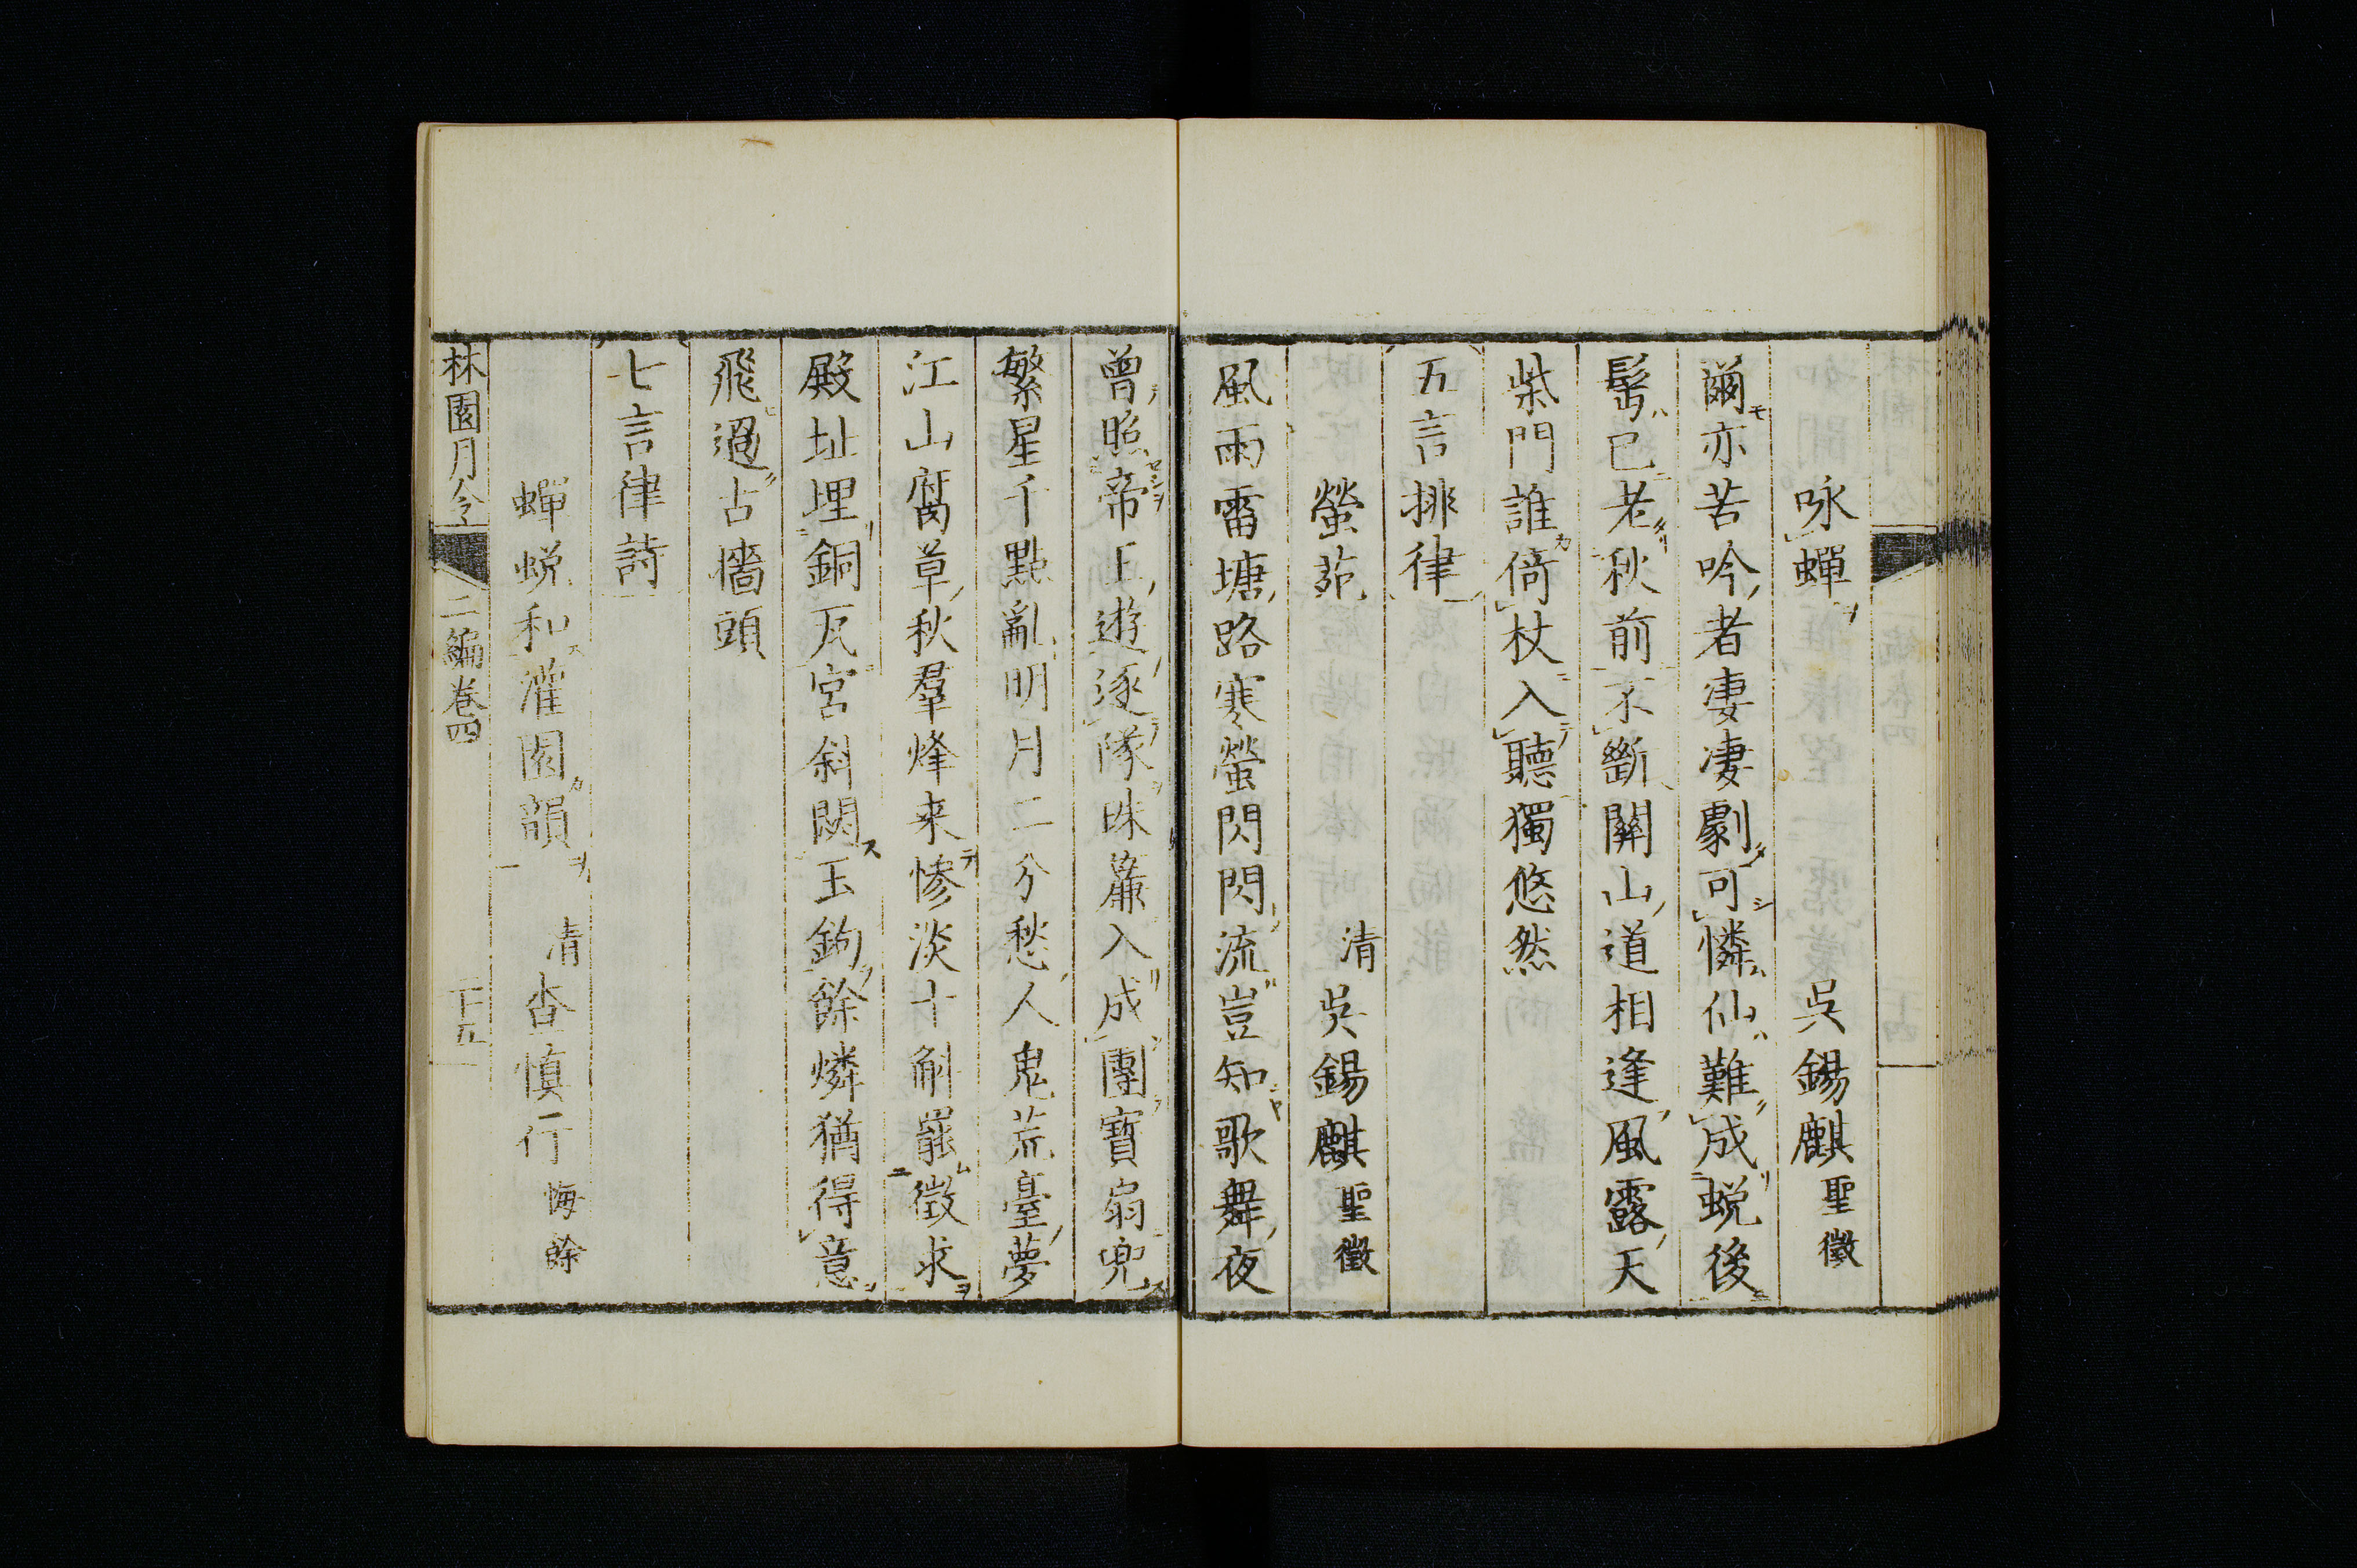 咏蟬 吳錫麒聖徵
爾亦苦吟者凄凄劇可憐仙難成蛻後
髩已老秋前不斷關山道相逢風露天
柴門誰倚杖入聽獨悠然
五言排律
螢苑 清吳錫麒聖徵
風雨雷塘路寒螢閃閃流豈知歌舞夜
曾照帝王遊逐隊昧簾入成團寶扇兜
繁星千點亂明月二分愁人鬼荒臺夢
江山腐草秋羣烽来慘淡十斛罷徵求
殿址埋銅瓦宮斜閟玉鉤餘燐猶得意
飛過古牆頭
七言律詩
蟬蛻和灌園韻 清查慎行悔餘
林園月令 二編卷四 十五